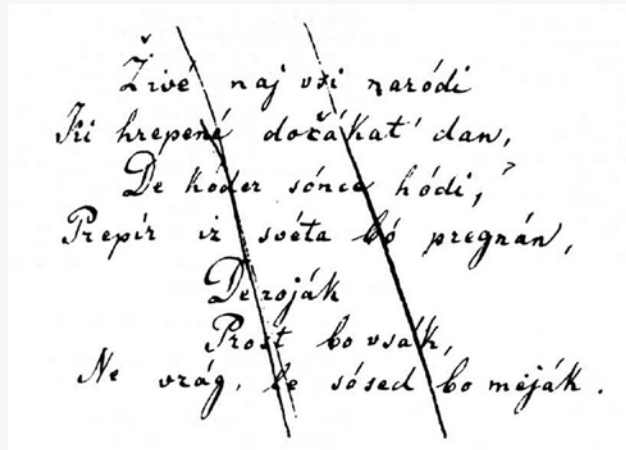 Živé naj vsi naródi
Ki hrepené dočakat' dan,
De kóder sónce hódi,
Prepir iz svéta bó pregnán,
De roják
Prost bo vsak,
Ne vrág, le sósed bo meják.